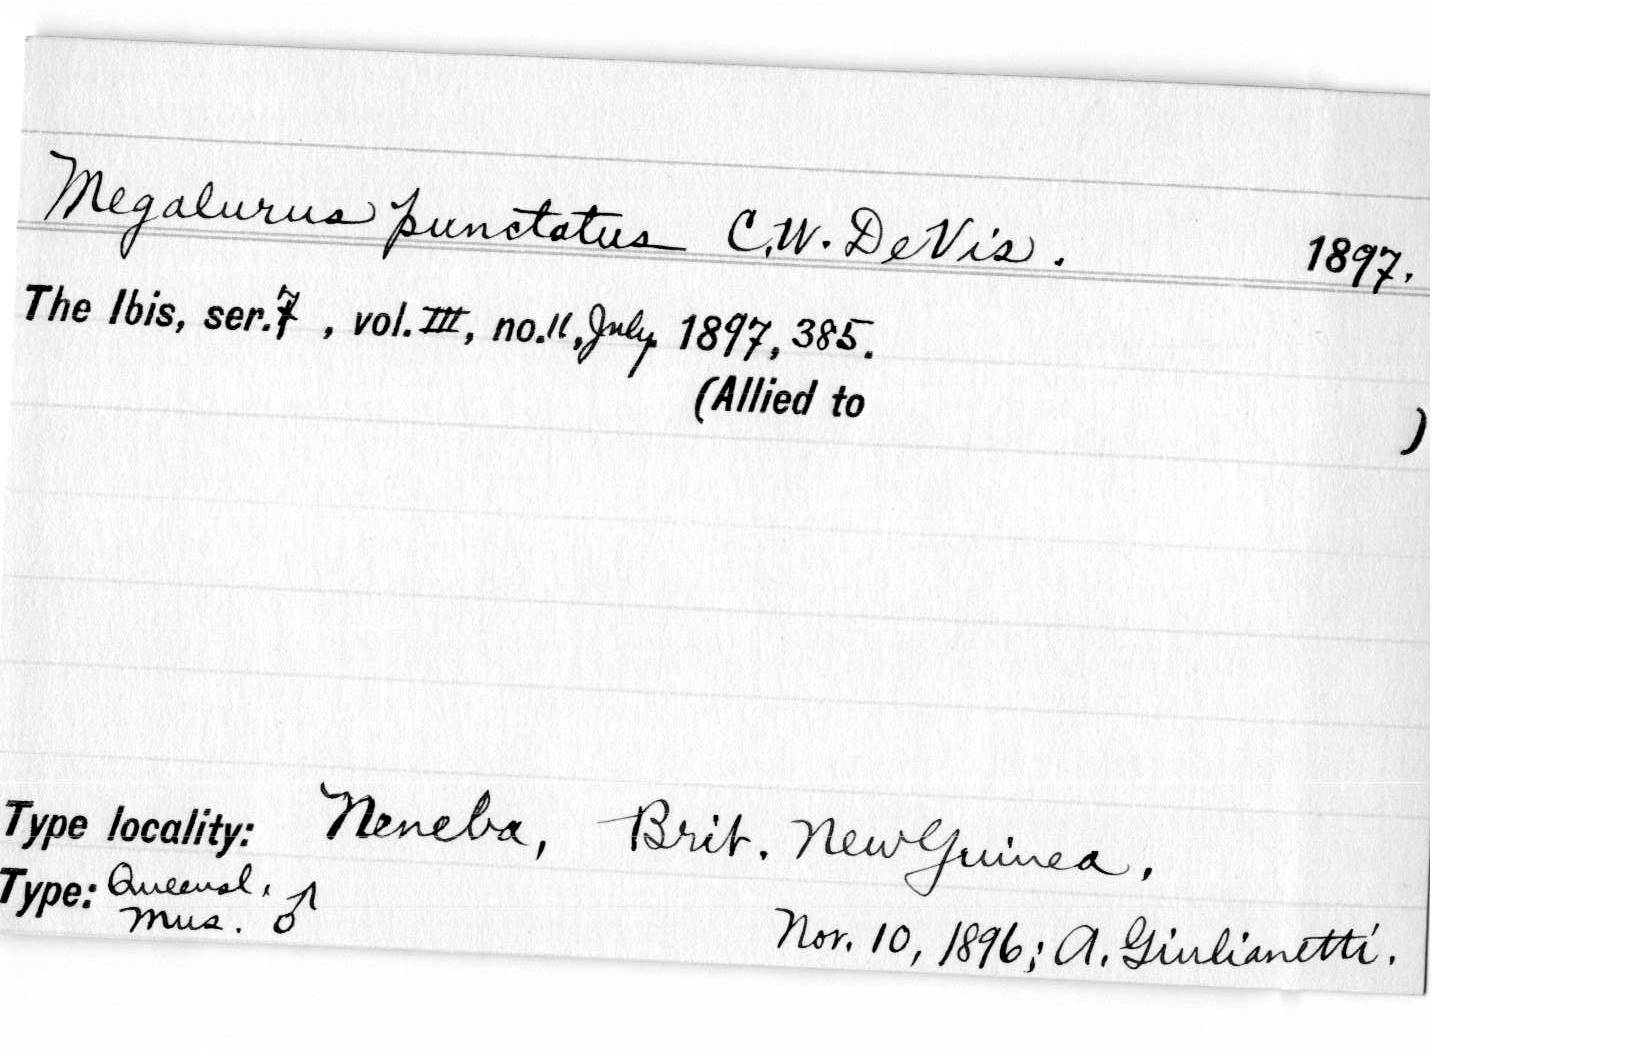 Megalurus punctatus C.W. DeVis. 1897.
The Ibis, ser. 7, vol. III, no. 11, July 1897, 385.
(Allied to )
Type locality: Neneba, Brit. New Guinea.
Type: Queensl. Mus. ♂
Nov. 10, 1896; A. Giulianetti.